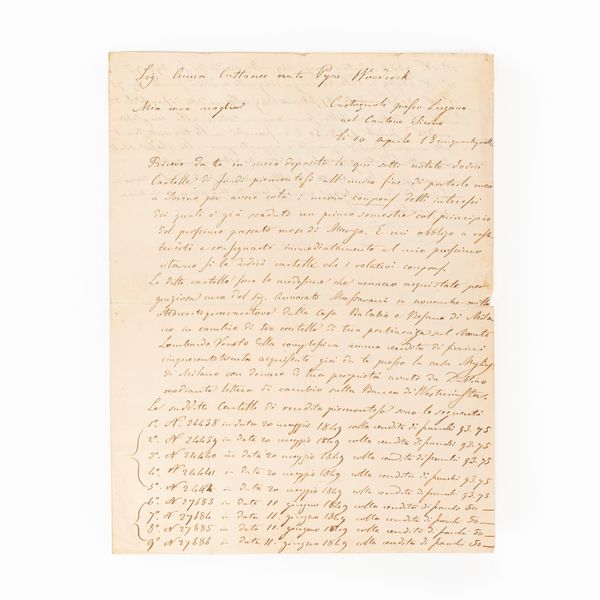 Sig. Anna Cattaneo nata Pyne Woodcock
Mia cara moglie
Castagnola presso Lugano
nel Cantone Ticino
li 10 aprile 18 cinquanta
Ricevo da te in mero deposito le qui sotto notate dodici
Cartelle di fondi piemontesi all'unico fine di portarle meco
a Torino per avere colà i nuovi coupons delli interessi
dei quali è già scaduto un primo semestre col principio
del prossimo passato mese di Marzo. E mi obbligo a
e consegnarti immediatamente al mio prossimo
ritorno sì le dodici cartelle che i relativi coupons.
Le dette cartelle sono le medesime che vennero acquistate per
graziosa cura del Sig. Avvocato in novembre mille
ottocento quarantanove dalla Casa Balabio e Besana di Mila-
no in cambio di tre cartelle di tua pertinenza sul Monte
Lombardo Veneto della complessiva annua rendita di fiorini
cinquecento trenta acquistate già da te presso la casa Mylius
di Milano con denaro di tua proprietà avuto da Dublino
mediante lettera di cambio sulla Banca di Westminster.
Le suddette Cartelle di rendita piemontese sono le seguenti
1° N. 24438 in data 20 maggio 1849 colla rendita di franchi 93.75
2° N. 24439 in data 20 maggio 1849 colla rendita di franchi 93.75
3° N 24440 in data 20 maggio 1849 colla rendita di franchi 93.75
4° N 24441 in data 20 maggio 1849 colla rendita di franchi 93.75
5° N 24442 in data 20 maggio 1849 colla rendita di franchi 93.75
6° N 27683 in data 11. giugno 1849 colla rendita di franchi 50—
7° N 27684 in data 11. giugno 1849 colla rendita di franchi 50—
8° N 27685 in data 11. giugno 1849 colla rendita di franchi 50—
9° N 27686 in data 11. giugno 1849 colla rendita di franchi 50—